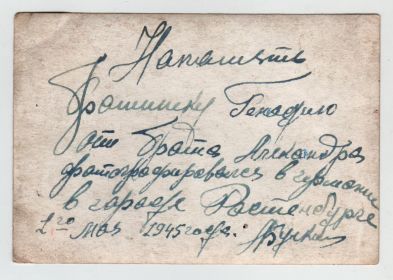 На память
братишку Генадию
от брата Александра
фотографировался в германии
в городе Растенбурге
1го мая 1945 года.